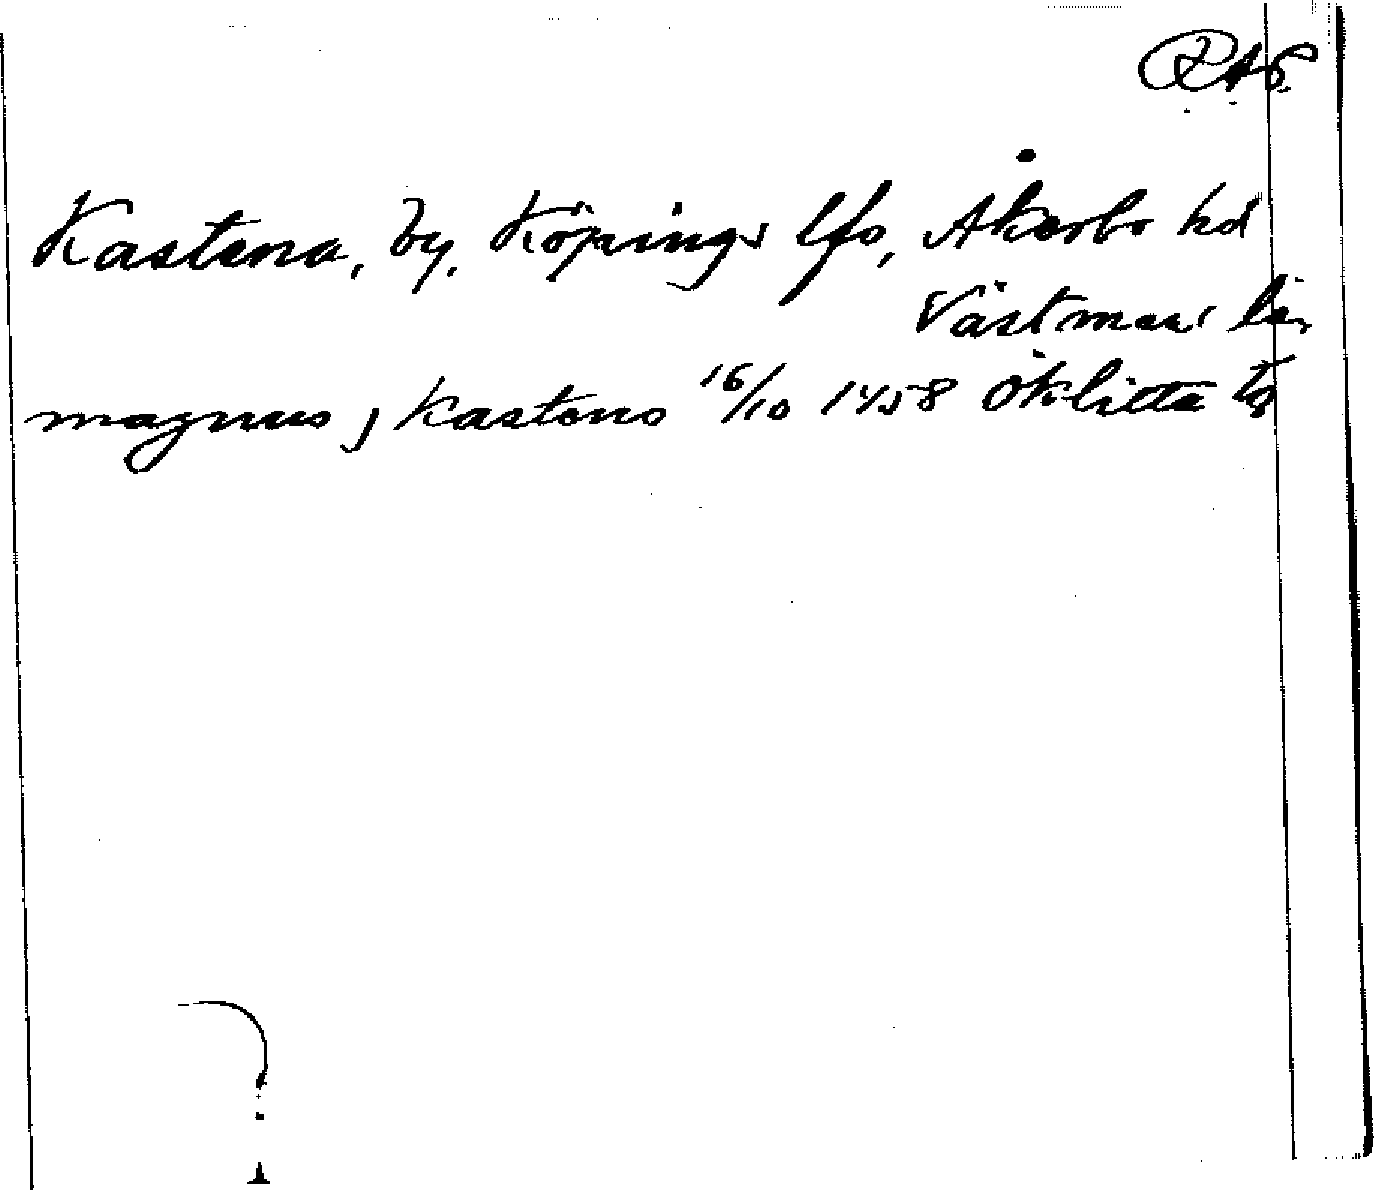 RAP.
Kastena, by, Köpings lfs, Åkerbo hd
Västman län
magnus j kastono 16/10 1458 Öklitta to